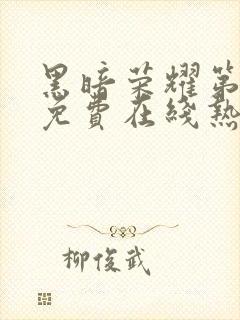 黑暗荣耀第
免費在綫熱
柳俊武